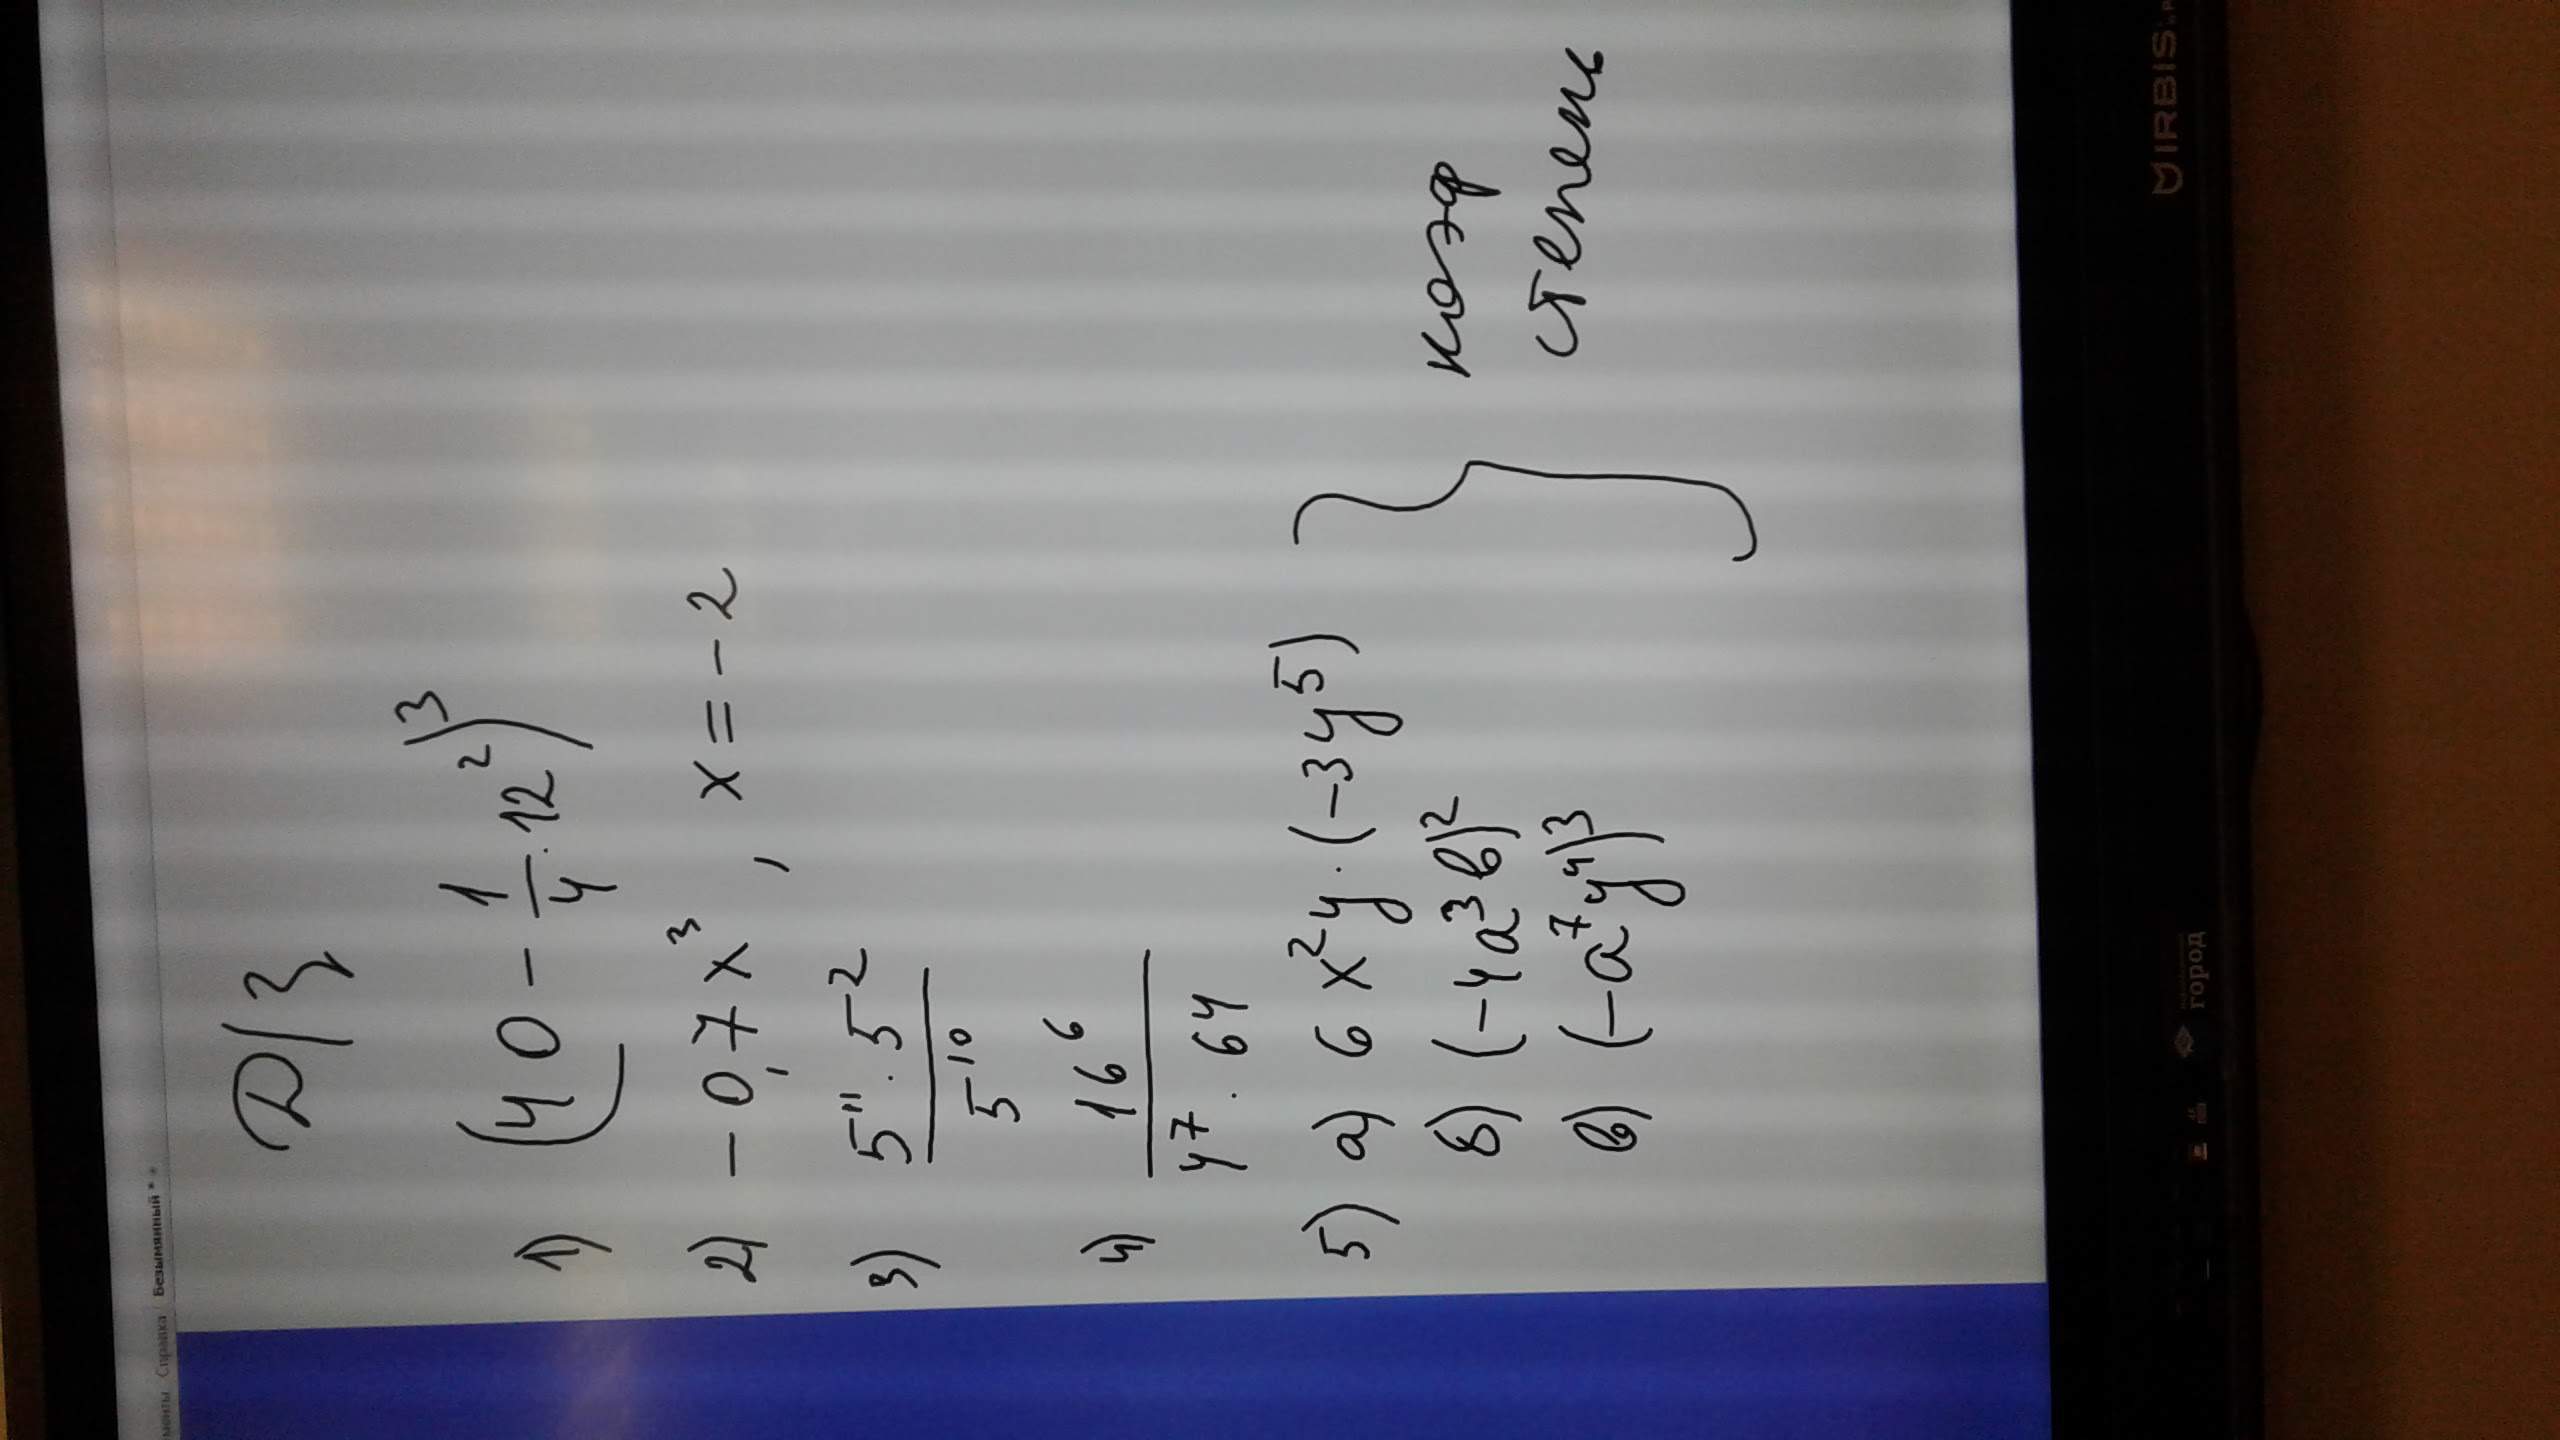 менты Справка Безымянный * *
Д/З
1) (40 - 1/4 · 12²)³
2) - 0,7x³, x = - 2
3) 5¹¹ · 5² / 5¹⁰
4) 16⁶ / 4⁷ · 64
5) а) 6x²y · (-3y⁵)
б) (-4a³b)²
в) (-a⁷y⁴)³
коэф
степень
IRBIS
город